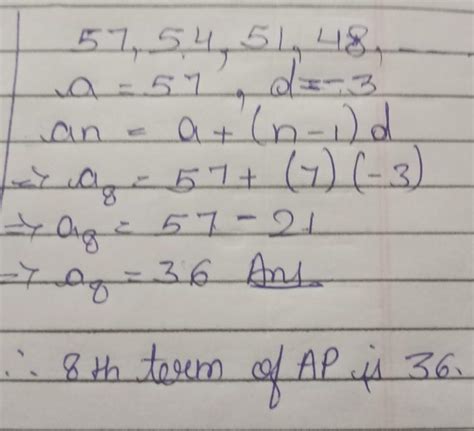 57, 54, 51, 48, ---
a = 57 , d = -3
an = a + (n-1) d
=> a₈ = 57 + (7) (-3)
=> a₈ = 57 - 21
=> a₈ = 36 Ans.
∴ 8th term of AP is 36.